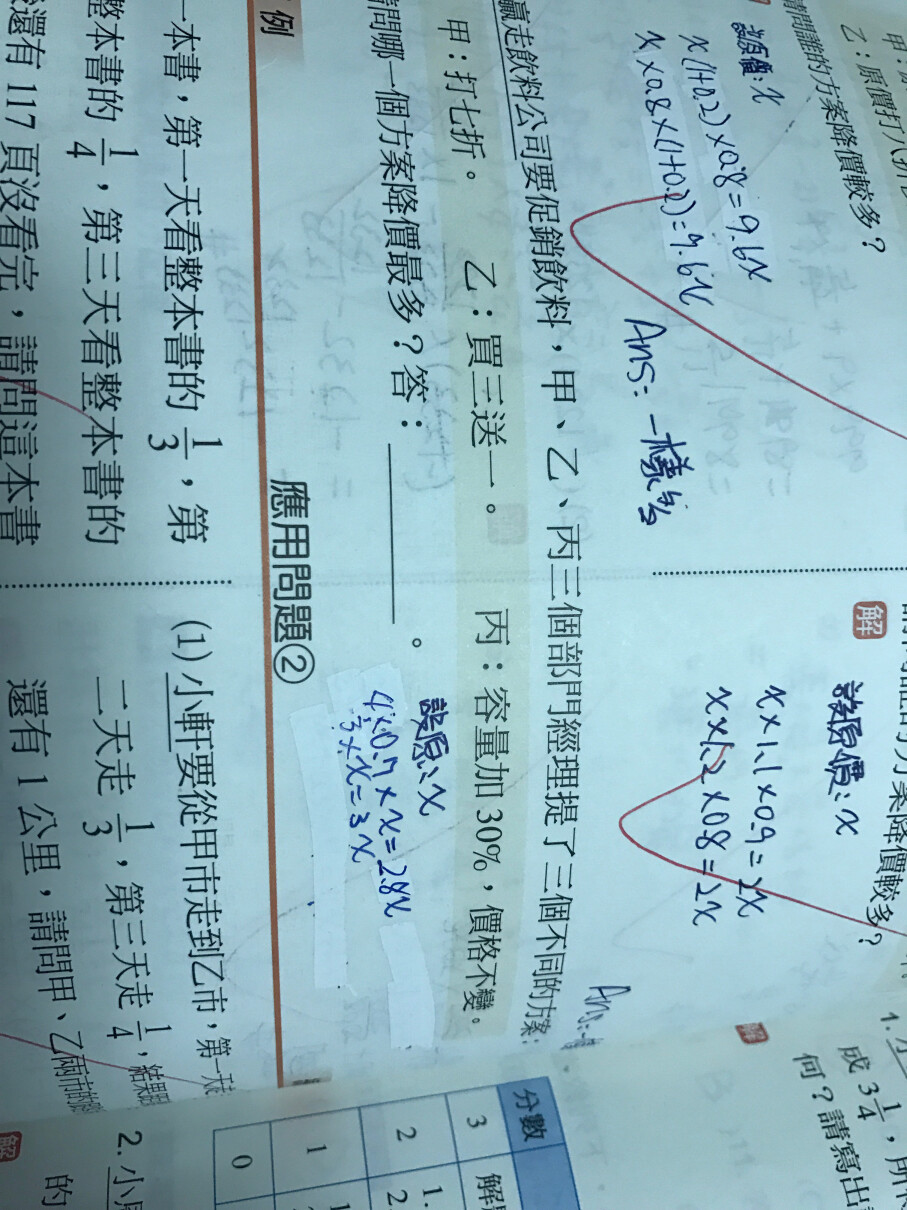 乙：原價打八折
請問誰的方案降價較多？
設原價：x
x(1+0.2)×0.8=9.6x
x×0.8×(1+0.2)=9.6x
Ans：一樣多
方案降價較多？
解
設原價：x
x×1.1×0.9=2x
x×1.2×0.8=2x
贏走飲料公司要促銷飲料，甲、乙、丙三個部門經理提了三個不同的方案：
甲：打七折。 乙：買三送一。 丙：容量加30%，價格不變。
請問哪一個方案降價最多？答：＿＿＿＿。
設原：x
4×0.7×x=2.8x
3×x=3x
應用問題②
例
一本書，第一天看整本書的1/3，第
整本書的1/4，第三天看整本書的
還有117頁沒看完，請問這本書
(1)小軒要從甲市走到乙市，第一天
二天走1/3，第三天走1/4，結果
還有1公里，請問甲、乙兩市的
Ans：
1.
成3 1/4，所
何？請寫出
解
分數
3
2
1
0
2.小
的
解